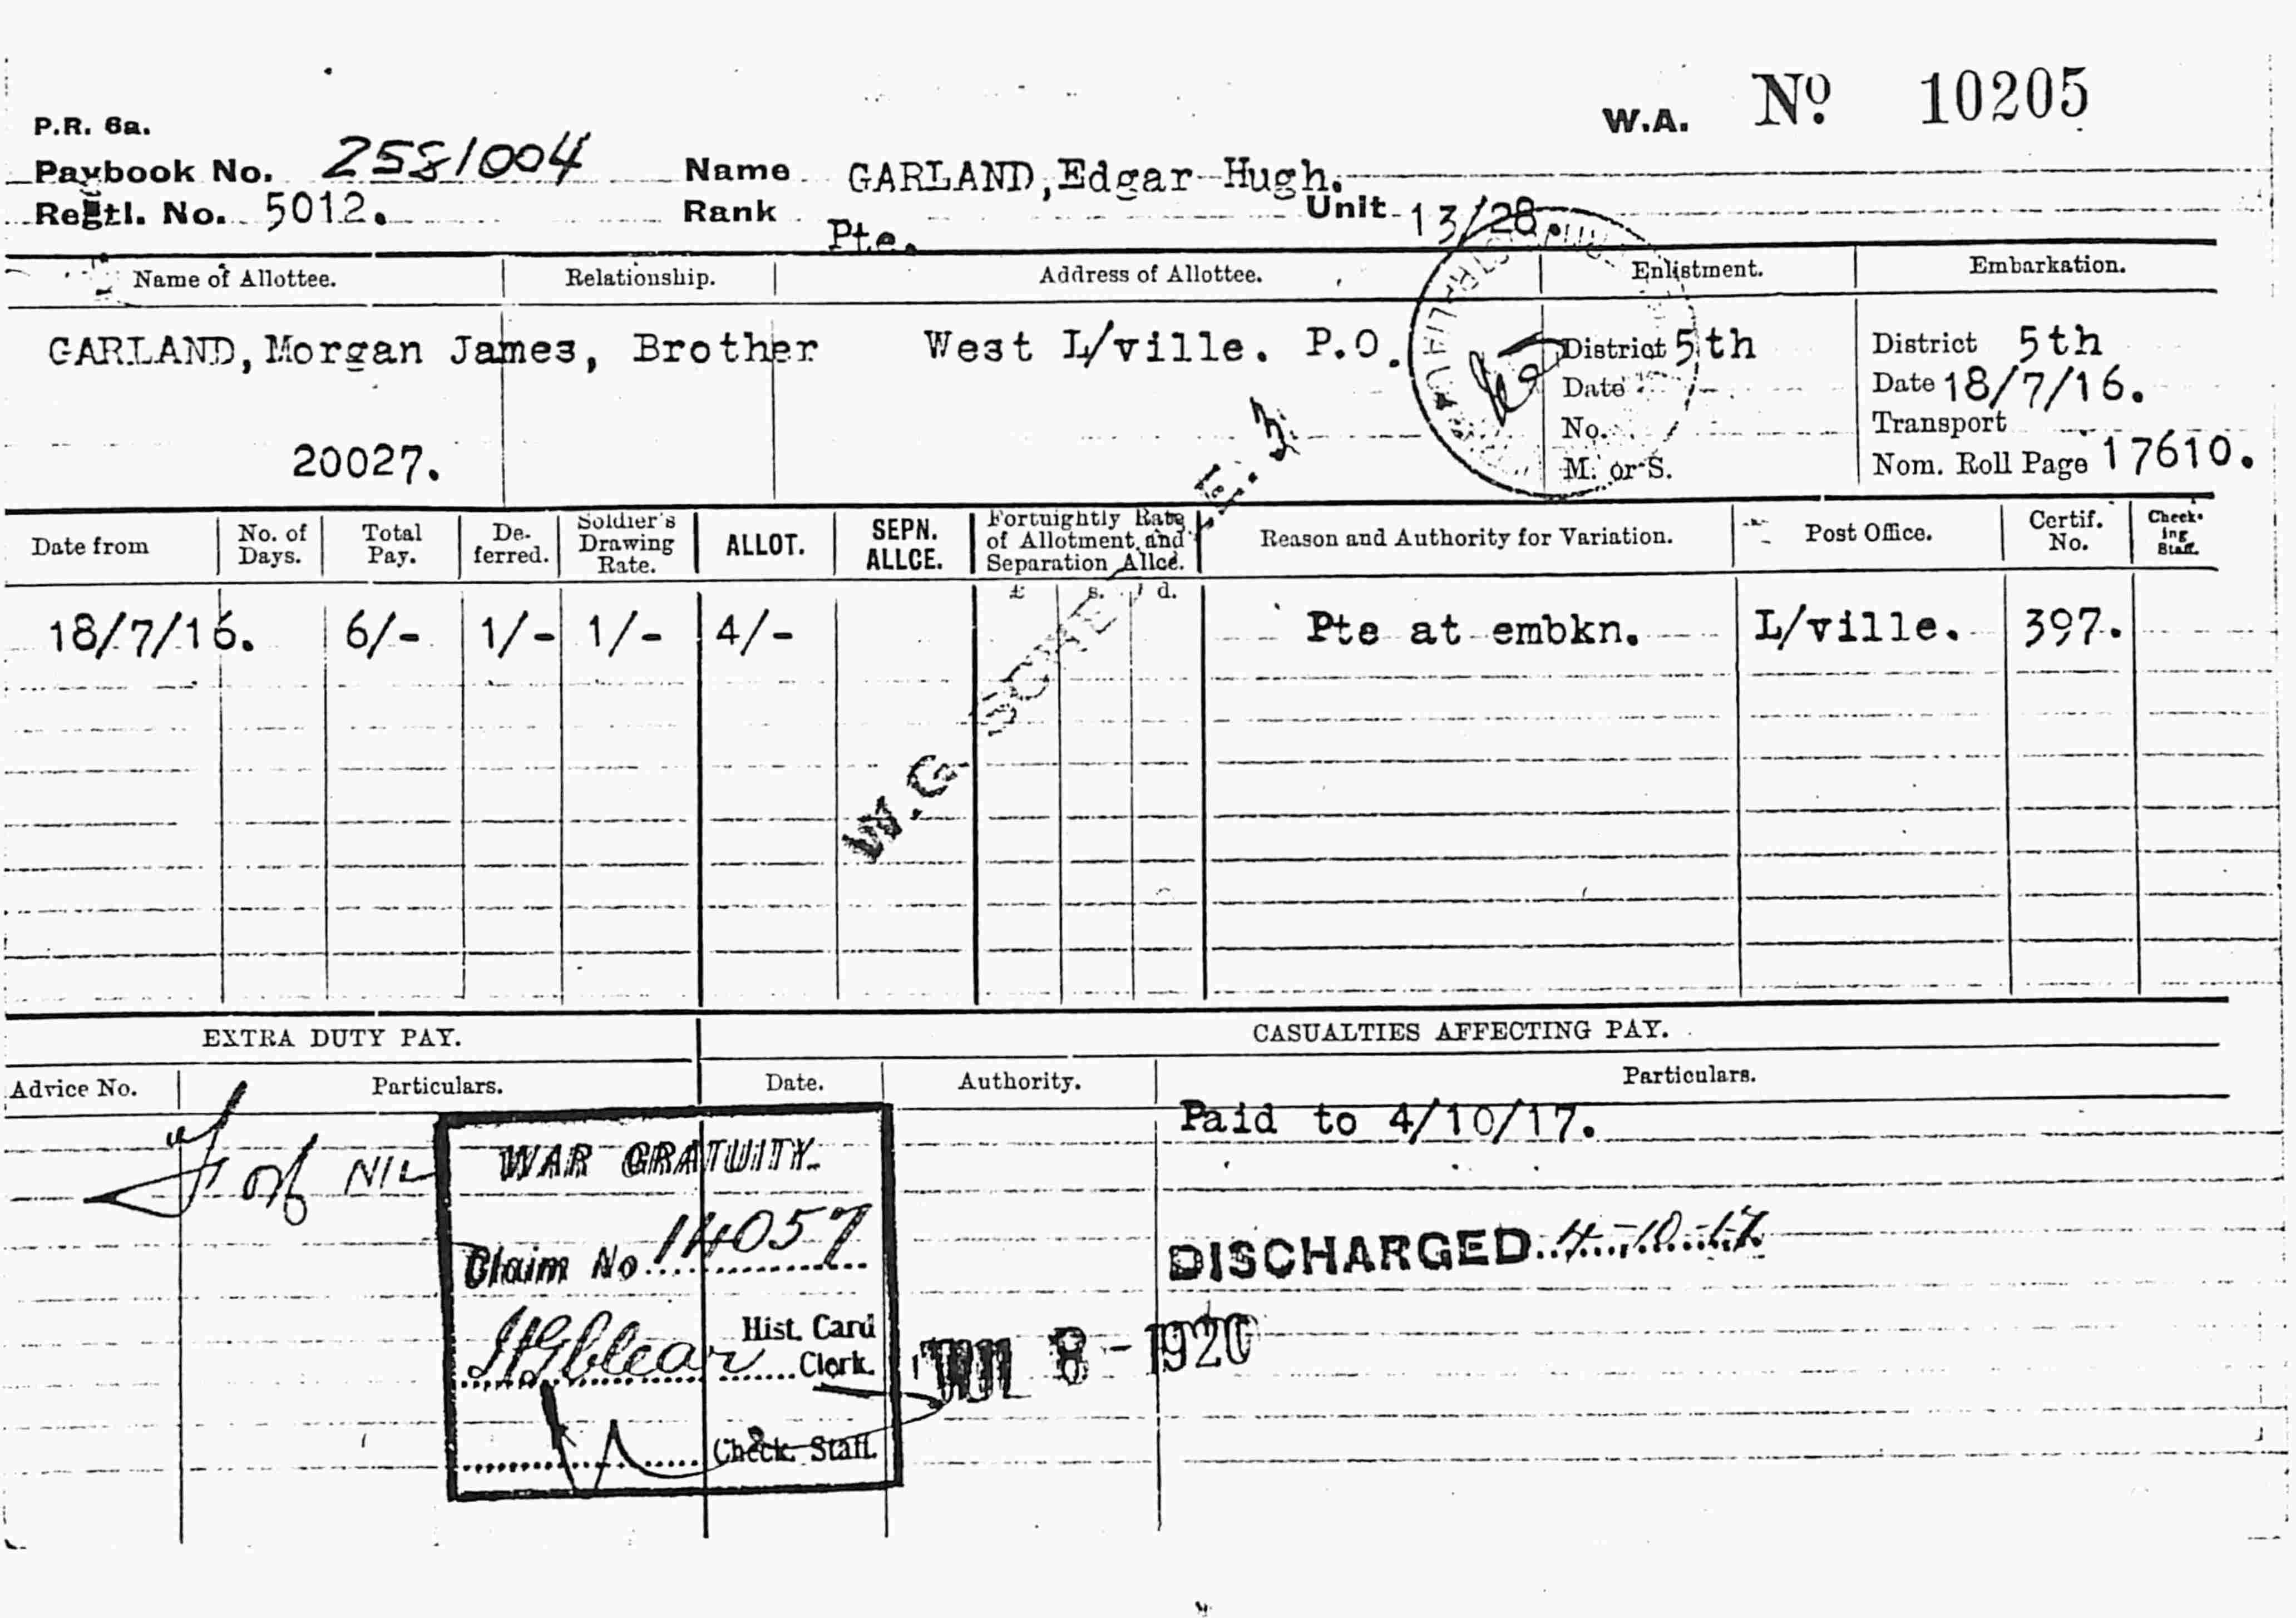 W.A. No 10205
P.R. 6a.
Paybook No. 2581004 Name GARLAND, Edgar Hugh.
Regtl. No. 5012. Rank Pte. Unit 13/28.
Name of Allottee. Relationship. Address of Allottee. Enlistment. Embarkation.
GARLAND, Morgan James, Brother West L/ville. P.O. District 5th District 5th
Date Date 18/7/16.
No. Transport
20027. M. or S. Nom. Roll Page 17610.
Date from No. of Days. Total Pay. De-ferred. Soldier's Drawing Rate. ALLOT. SEPN. ALLCE. Fortnightly Rate of Allotment and Separation Allce. Reason and Authority for Variation. Post Office. Certif. No. Check-ing Staff.
£ s. d.
18/7/16. 6/- 1/- 1/- 4/- Pte at embkn. L/ville. 397.
W.G.
EXTRA DUTY PAY. CASUALTIES AFFECTING PAY.
Advice No. Particulars. Date. Authority. Particulars.
Paid to 4/10/17.
NIL
WAR GRATUITY.
Claim No 14057
DISCHARGED 4.10.17.
Hist. Card
Clerk.
8-1920
Check. Staff.